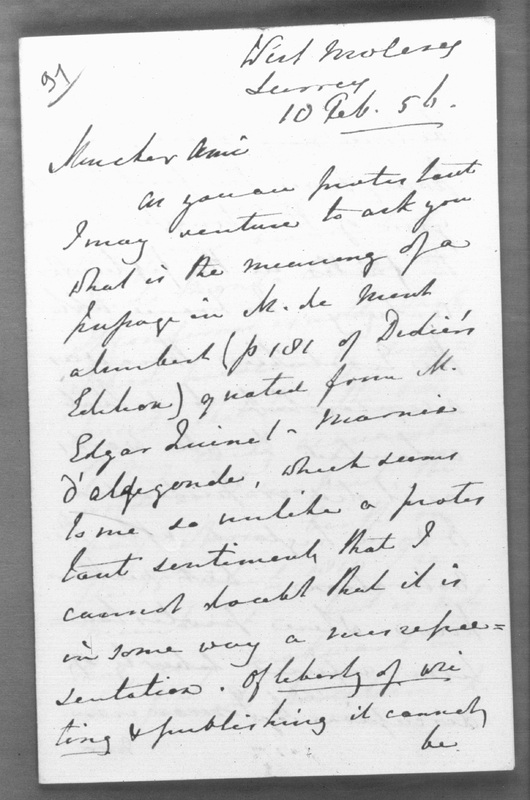 91
West Molesey
Surrey
10 Feb. 56.
Mon cher Ami
As you are protestant
I may venture to ask you
what is the meaning of a
passage in M. de Mont
alembert (p 181 of Didier's
Edition) quoted from M.
Edgar Quinet - Marnix
d'aldegonde, which seems
to me so unlike a protes
tant sentiment, that I
cannot doubt that it is
in some way a misrepre=
sentation. Of liberty of wri
ting & publishing it cannot
be